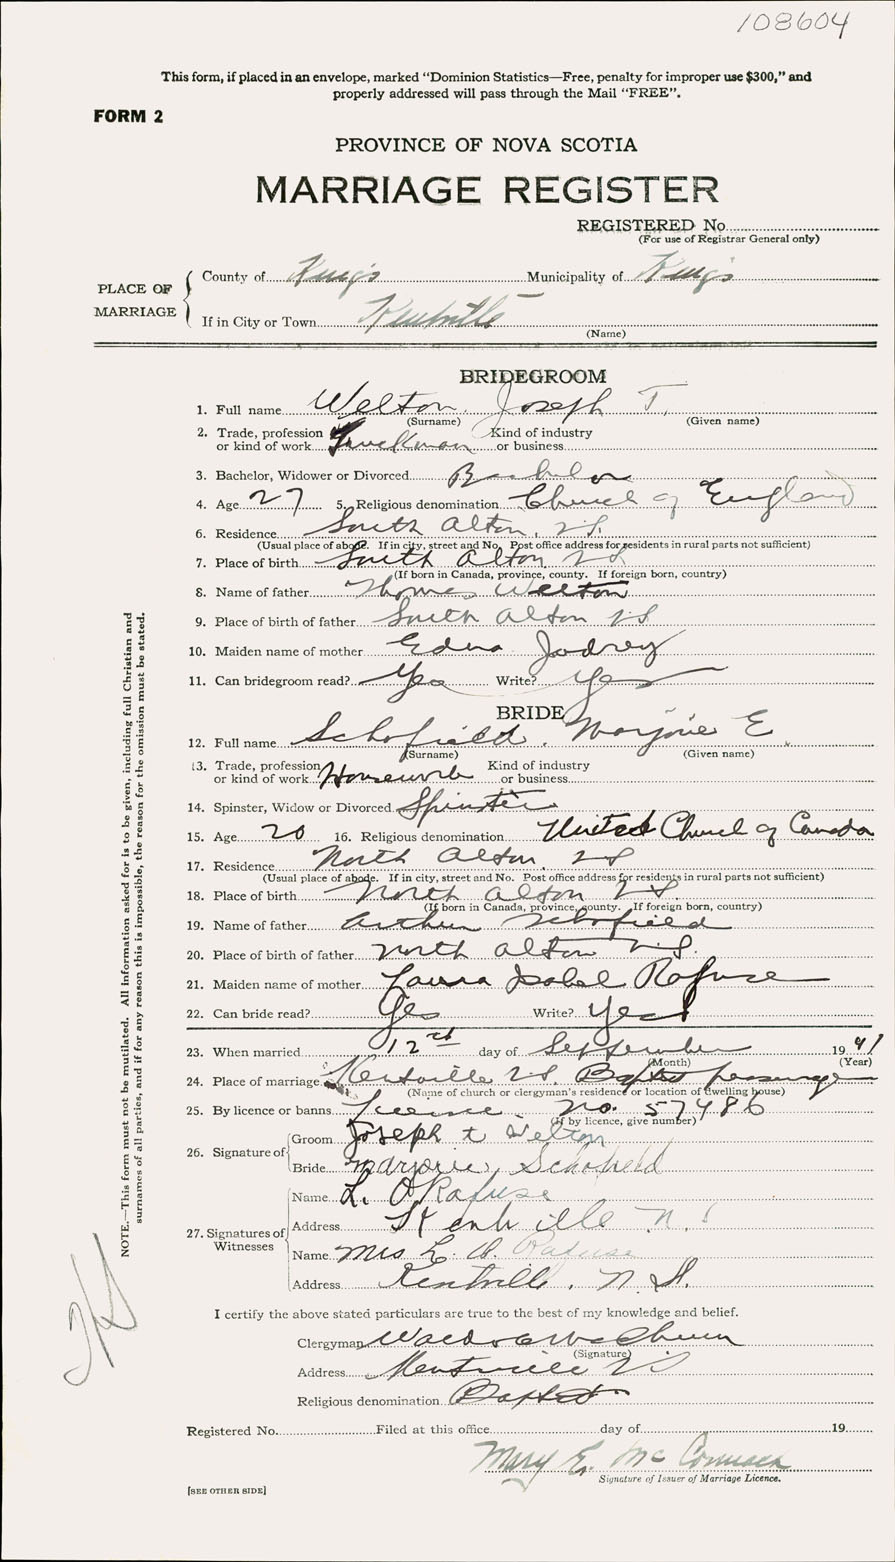 108604
This form, if placed in an envelope, marked “Dominion Statistics—Free, penalty for improper use $300,” and
properly addressed will pass through the Mail “FREE”.
FORM 2
PROVINCE OF NOVA SCOTIA
MARRIAGE REGISTER
REGISTERED No.
(For use of Registrar General only)
PLACE OF MARRIAGE
County of Kings Municipality of Kings
If in City or Town Kentville
(Name)
BRIDEGROOM
1. Full name Welton Joseph T.
(Surname) (Given name)
2. Trade, profession or kind of work Truckman Kind of industry or business
3. Bachelor, Widower or Divorced Bachelor
4. Age 27 5. Religious denomination Church of England
6. Residence South Alton, N.S.
(Usual place of abode. If in city, street and No. Post office address for residents in rural parts not sufficient)
7. Place of birth South Alton N S
(If born in Canada, province, county. If foreign born, country)
8. Name of father Thomas Welton
9. Place of birth of father South Alton N S
10. Maiden name of mother Edna Jodrey
11. Can bridegroom read? Yes Write? Yes
BRIDE
12. Full name Schofield, Marjorie E.
(Surname) (Given name)
13. Trade, profession or kind of work Housework Kind of industry or business
14. Spinster, Widow or Divorced Spinster
15. Age 20 16. Religious denomination United Church of Canada
17. Residence North Alton N S
(Usual place of abode. If in city, street and No. Post office address for residents in rural parts not sufficient)
18. Place of birth North Alton N S.
(If born in Canada, province, county. If foreign born, country)
19. Name of father Arthur Schofield
20. Place of birth of father North Alton N.S.
21. Maiden name of mother Laura Isabel Rafuse
22. Can bride read? Yes Write? Yes
23. When married 12th day of September 1941
(Month) (Year)
24. Place of marriage Kentville N.S. Baptist parsonage
(Name of church or clergyman's residence or location of dwelling house)
25. By licence or banns License. No. 57486
(If by licence, give number)
26. Signature of
Groom Joseph t Welton
Bride Marjorie, Schofield
27. Signatures of Witnesses
Name L. O Rafuse
Address Kentville N.S
Name Mrs L. O. Rafuse
Address Kentville, N.S.
I certify the above stated particulars are true to the best of my knowledge and belief.
Clergyman
(Signature)
Address Kentville N S
Religious denomination Baptist
Registered No. Filed at this office day of 19
Mary E. McCormack
Signature of Issuer of Marriage Licence.
[SEE OTHER SIDE]
NOTE.—This form must not be mutilated. All information asked for is to be given, including full Christian and
surnames of all parties, and if for any reason this is impossible, the reason for the omission must be stated.